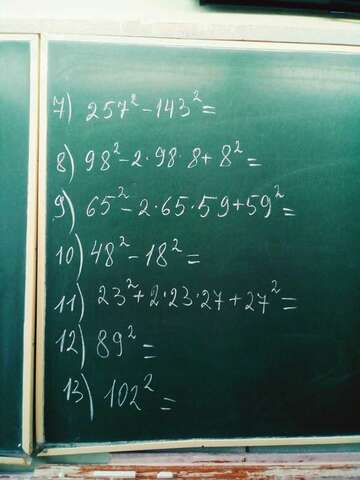 7) 257² - 143² =
8) 98² - 2·98·8 + 8² =
9) 65² - 2·65·59 + 59² =
10) 48² - 18² =
11) 23² + 2·23·27 + 27² =
12) 89² =
13) 102² =